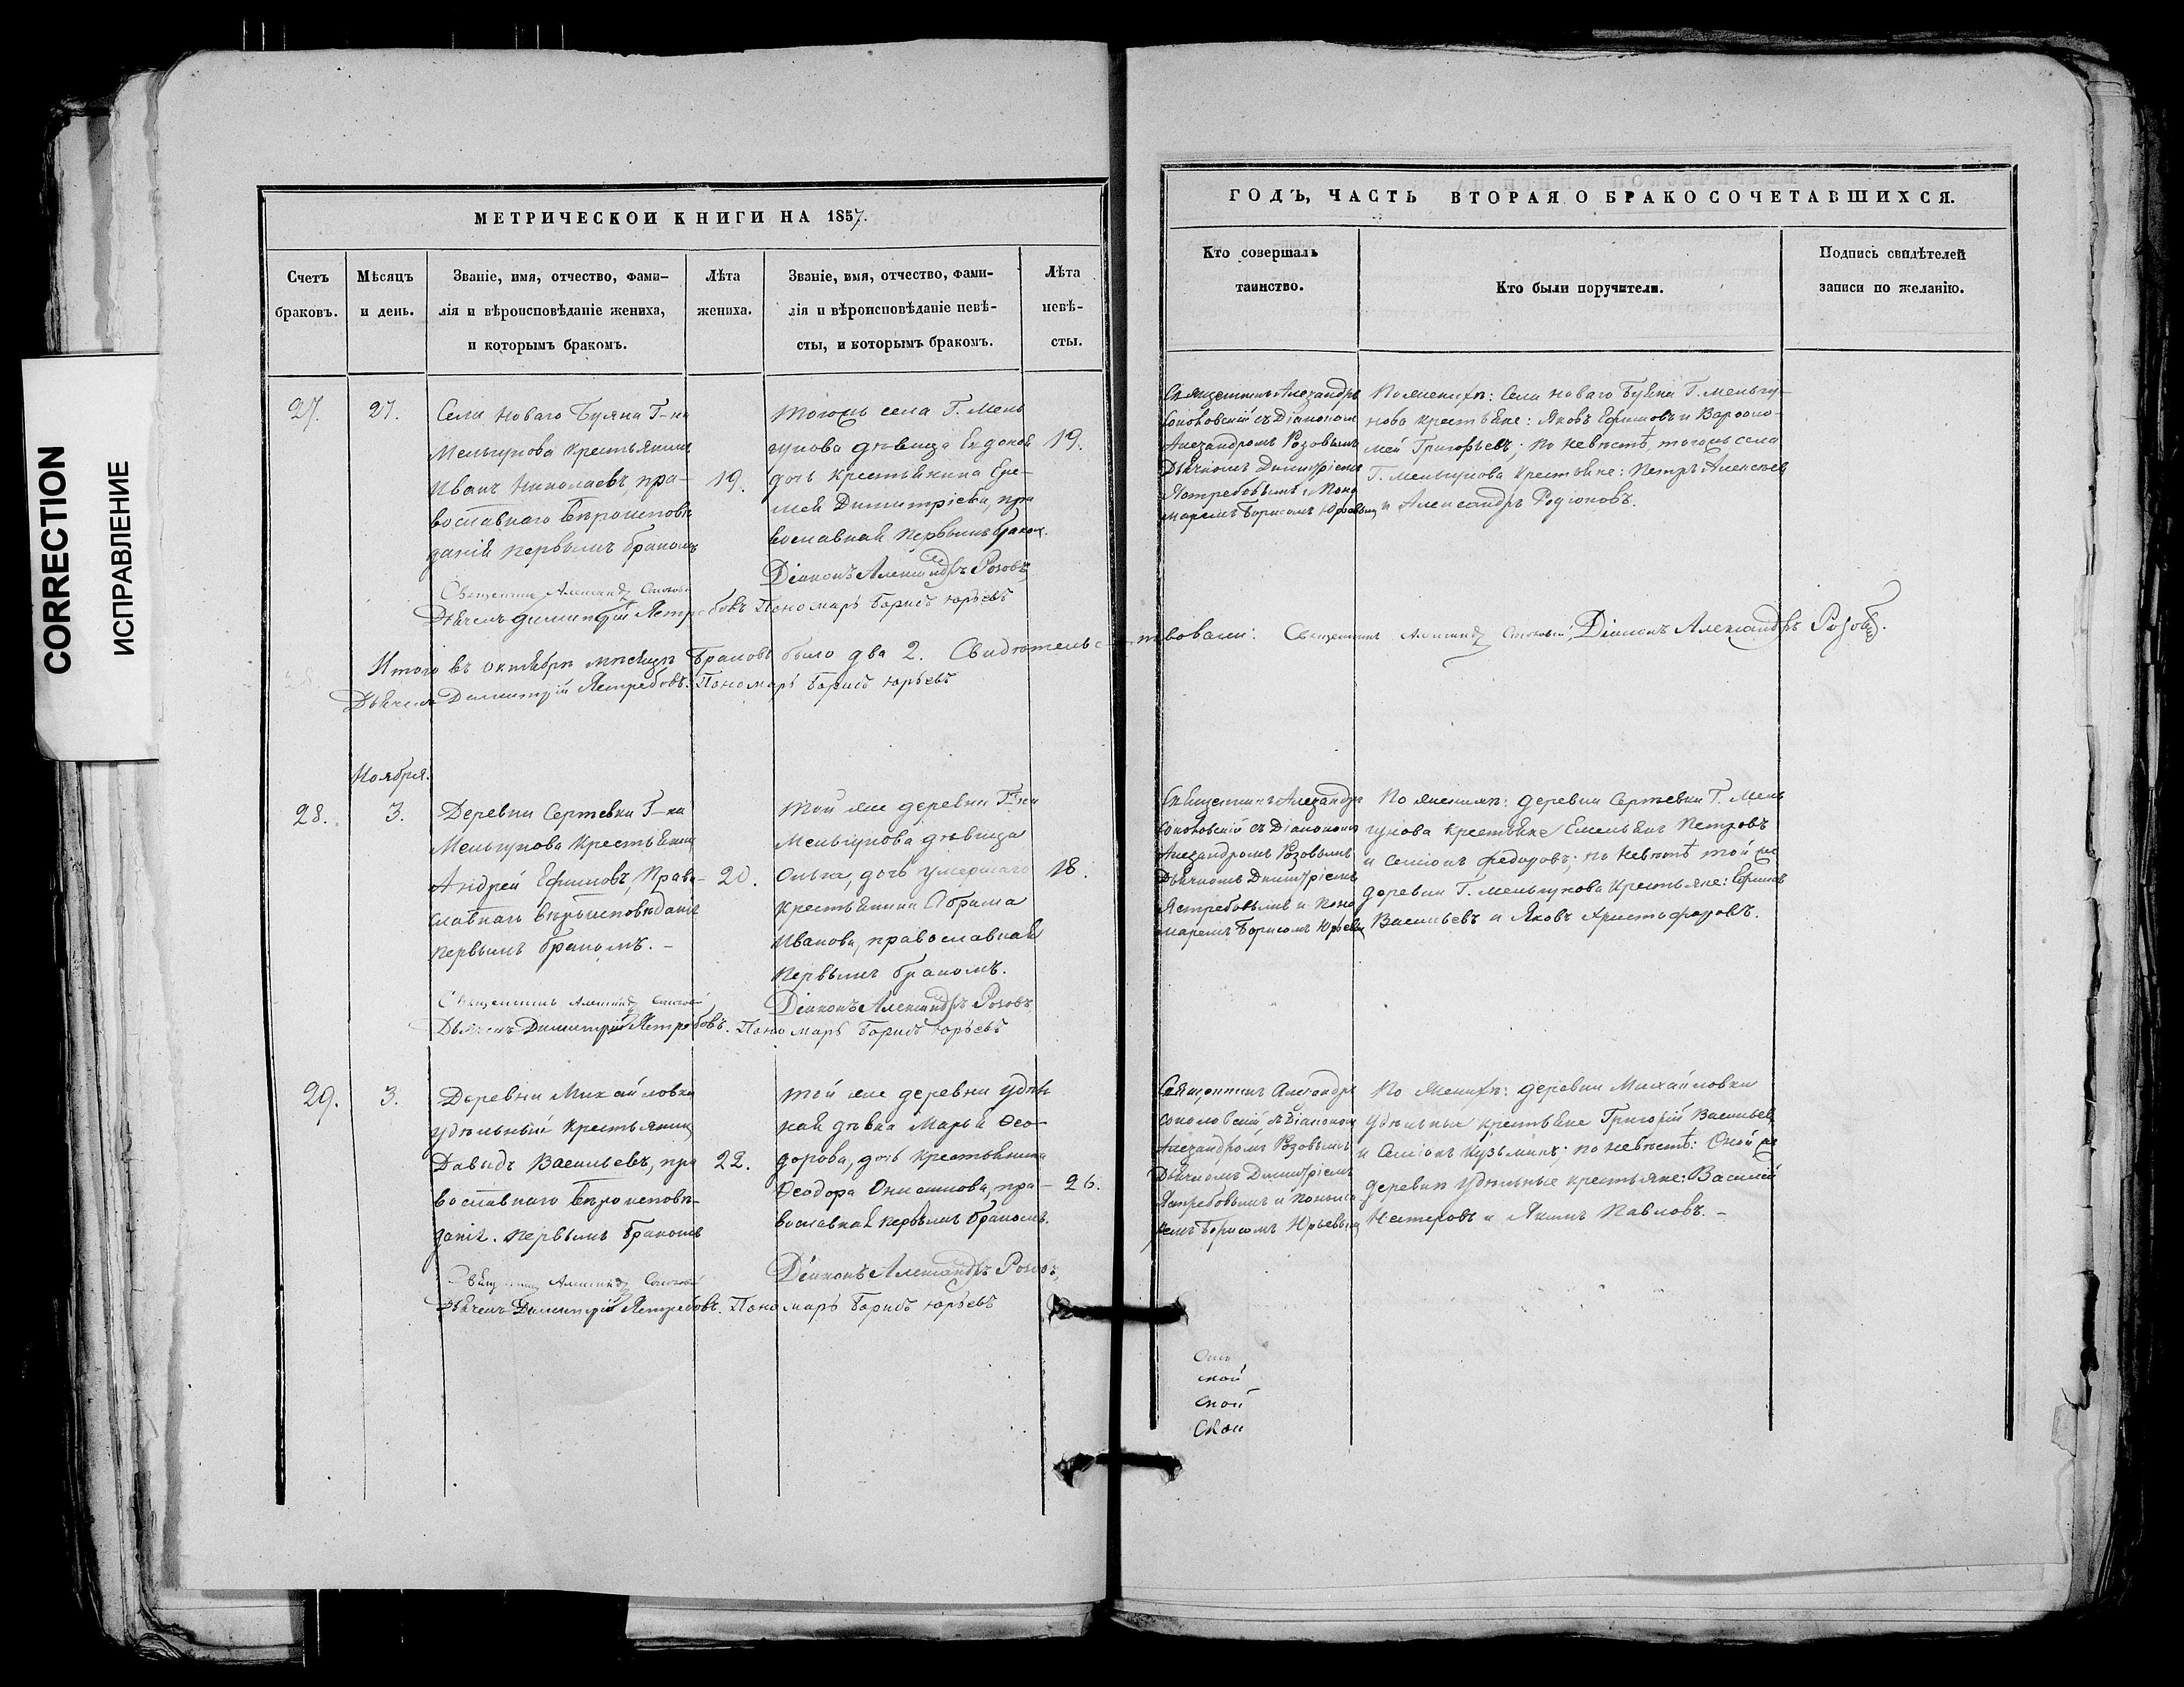 CORRECTION
ИСПРАВЛЕНИЕ
МЕТРИЧЕСКОЙ КНИГИ НА 1857.
Счетъ
браковъ.
Мѣсяцъ
и день.
Званіе, имя, отчество, фами-
лія и вѣроисповѣданіе жениха,
и которымъ бракомъ.
Лѣта
жениха.
Званіе, имя, отчество, фами-
лія и вѣроисповѣданіе невѣ-
сты, и которымъ бракомъ.
Лѣта
невѣ-
сты.
27.
27.
Села Новаго Буяна Г-на
Мельгунова крестьянинъ
Иванъ Николаевъ, пра-
вославнаго вѣроисповѣ
данія первымъ бракомъ
19.
Тогожъ села Г. Мель
гунова дѣвица
дочь крестьянина Ере-
мея Димитріева, пра
вославная первымъ браком.
19.
Діаконъ Александръ Розовъ
Священникъ Александръ
Дьячекъ Димитрій Ястребовъ Пономарь Борисъ Юрьевъ
Итого въ октябрѣ мѣсяцѣ браковъ было два 2. Свидѣтельс
Дьячекъ Димитрій Ястребовъ. Пономарь Борисъ Юрьевъ
Ноября.
28.
3.
Деревни Сертевки Г-на
Мельгунова крестьянинъ
Андрей Ефимовъ, Право-
славнаго вѣроисповѣданія
первымъ бракомъ. -
20.
Той же деревни Г-на
Мельгунова дѣвица
Ольга, дочь умершаго
крестьянина Абрама
Иванова, православная
первымъ бракомъ.
18.
Священникъ Александръ
Діаконъ Александръ Розовъ
Дьячекъ Димитрій Ястребовъ. Пономарь Борисъ Юрьевъ
29.
3.
Деревни Михайловки
удѣльный крестьянинъ
Давидъ Васильевъ, пра
вославнаго вѣроисповѣ-
данія. первымъ бракомъ
22.
Той же деревни удѣль
ная дѣвка Марья Ѳео-
дорова, дочь крестьянина
Ѳеодора Онисимова, пра-
вославная первымъ бракомъ.
26.
Священникъ Александръ
Діаконъ Александръ Розовъ,
Дьячекъ Димитрій Ястребовъ. Пономарь Борисъ Юрьевъ
ГОДЪ, ЧАСТЬ ВТОРАЯ О БРАКОСОЧЕТАВШИХСЯ.
Кто совершалъ
таинство.
Кто были поручители.
Подпись свидѣтелей
записи по желанію.
Священникъ Александръ
Соколовскій съ Діакономъ
Александромъ Розовымъ
Дьячкомъ Димитріемъ
Ястребовымъ и Поно
маремъ Борисомъ Юрьевым
По женихѣ: Села Новаго Буяна Г. Мельгу-
нова крестьяне: Яковъ Ефимовъ и Варѳоло-
мей Григорьевъ; по невѣстѣ, тогожъ села
Г. Мельгунова крестьяне: Петръ Алексѣевъ
и Александръ Родіоновъ.
твовали: Священникъ Александръ Діаконъ Александръ Розовъ.
Священникъ Александръ
Соколовскій съ Діакономъ
Александромъ Розовымъ
Дьячкомъ Димитріемъ
Ястребовымъ и Поно
маремъ Борисомъ Юрьевым
По женихѣ: деревни Сертевки Г. Мель
гунова крестьяне Емельянъ Петровъ
и Семіонъ Федоровъ; по невѣстѣ той же
деревни Г. Мельгунова крестьяне: Ефимъ
Васильевъ и Яковъ Христофоровъ.
Священникъ Александръ
Соколовскій, съ Діакономъ
Александромъ Розовымъ
Дьячкомъ Димитріемъ
Ястребовымъ и Понома
ремъ Борисомъ Юрьевым
По женихѣ: деревни Михайловки
Удѣльные крестьяне Григорій Васильевъ
и Семіонъ Кузьминъ; по невѣстѣ: Оной же
деревни удѣльные крестьяне: Василій
Нестеровъ и Якимъ Павловъ. -
ской
ской
Скои